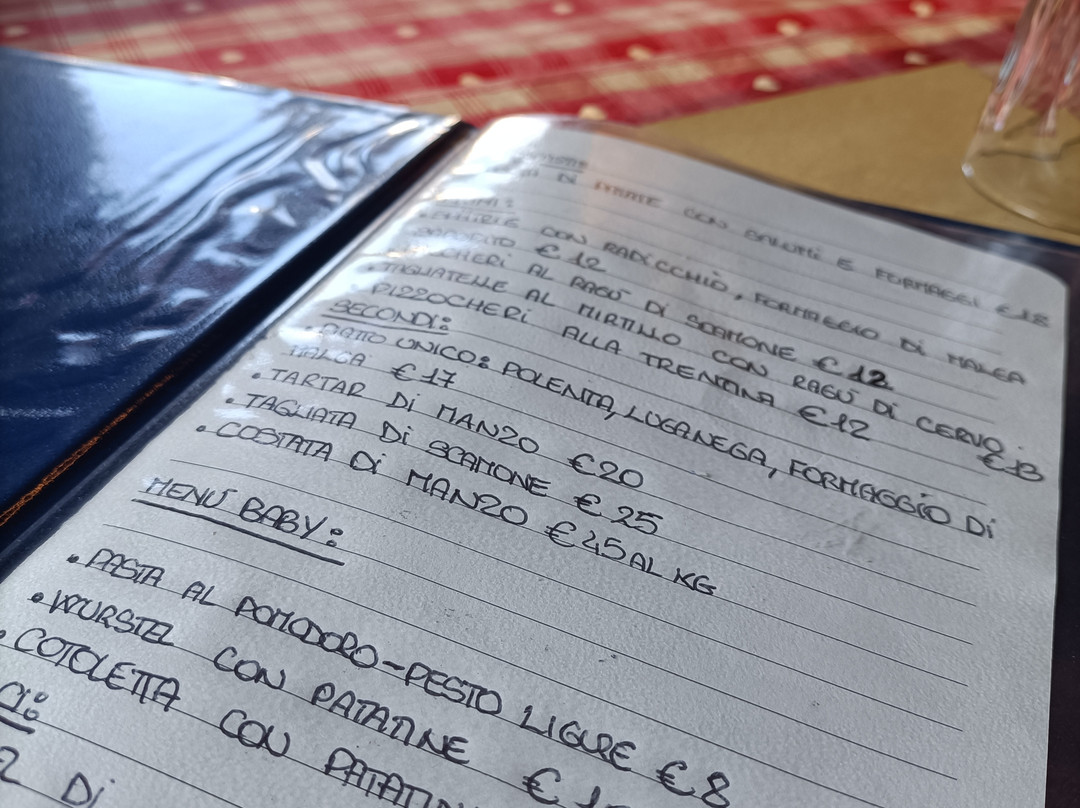 DI PATATE CON SALUMI E FORMAGGI €18
CON RADICCHIO, FORMAGGIO DI MALGA
SAPORITO €12
AL RAGÙ DI SCAMONE €12
•TAGLIATELLE AL MIRTILLO CON RAGÙ DI CERVO €13
PIZZOCHERI ALLA TRENTINA €12
SECONDI:
•PIATTO UNICO: POLENTA, LUGANEGA, FORMAGGIO DI
MALGA €17
•TARTAR DI MANZO €20
•TAGLIATA DI SCAMONE €25
•COSTATA DI MANZO €45 AL KG
MENÙ BABY:
•PASTA AL POMODORO-PESTO LIGURE €8
•WURSTEL CON PATATINE €
•COTOLETTA CON
DI